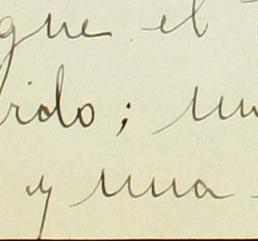 que el
ido; un
y una